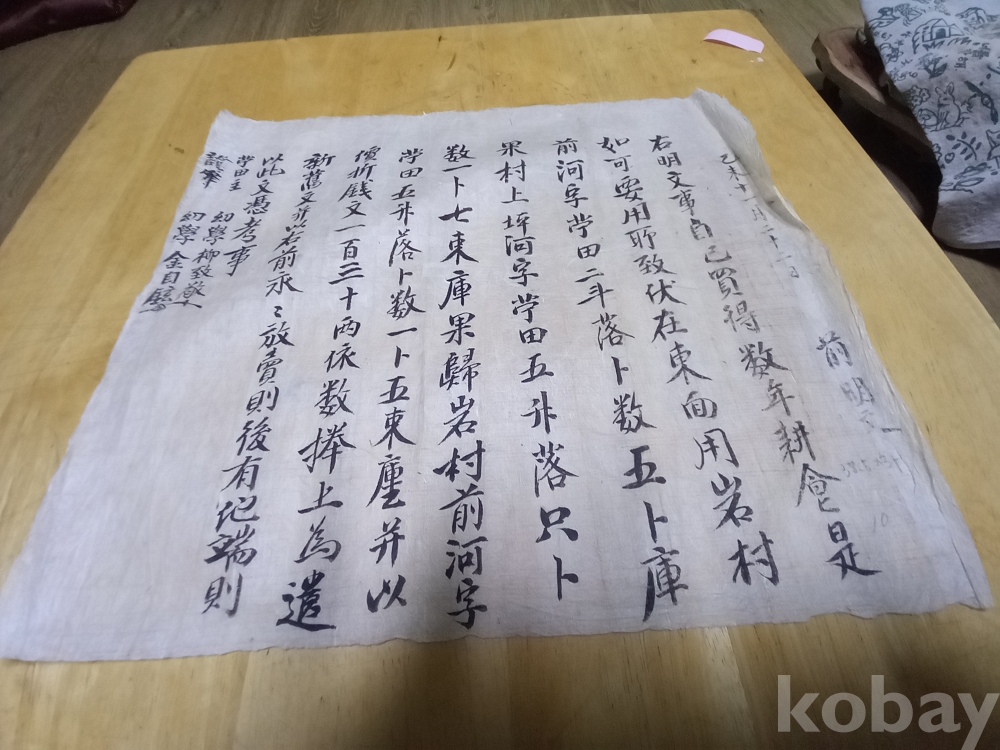 己未十一月二十二日 前明文
右明文事自己買得数年耕食是
如可要用所致伏在東面用岩村
前河字畓田二斗落卜数五卜庫
果村上坪河字畓田五升落只卜
数一卜七束庫果歸岩村前河字
畓田五升落卜数一卜五束廛并以
價折錢文一百三十両依数捧上為遣
新舊文并以右前永々放賣則後有
以此文憑考事
畓田主 幼學柳致
證筆 幼學金自
kobay